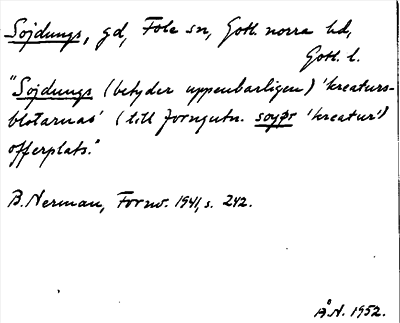 Sojdungs, gd, Fole sn, Gotl. norra hd,
Gotl. l.
"Sojdungs (betyder uppenbarligen) 'kreaturs-
blotarnas' (till forngutn. soyþr 'kreatur')
offerplats."
B. Nerman, Fornv. 1941, s. 242.
Å.N. 1952.